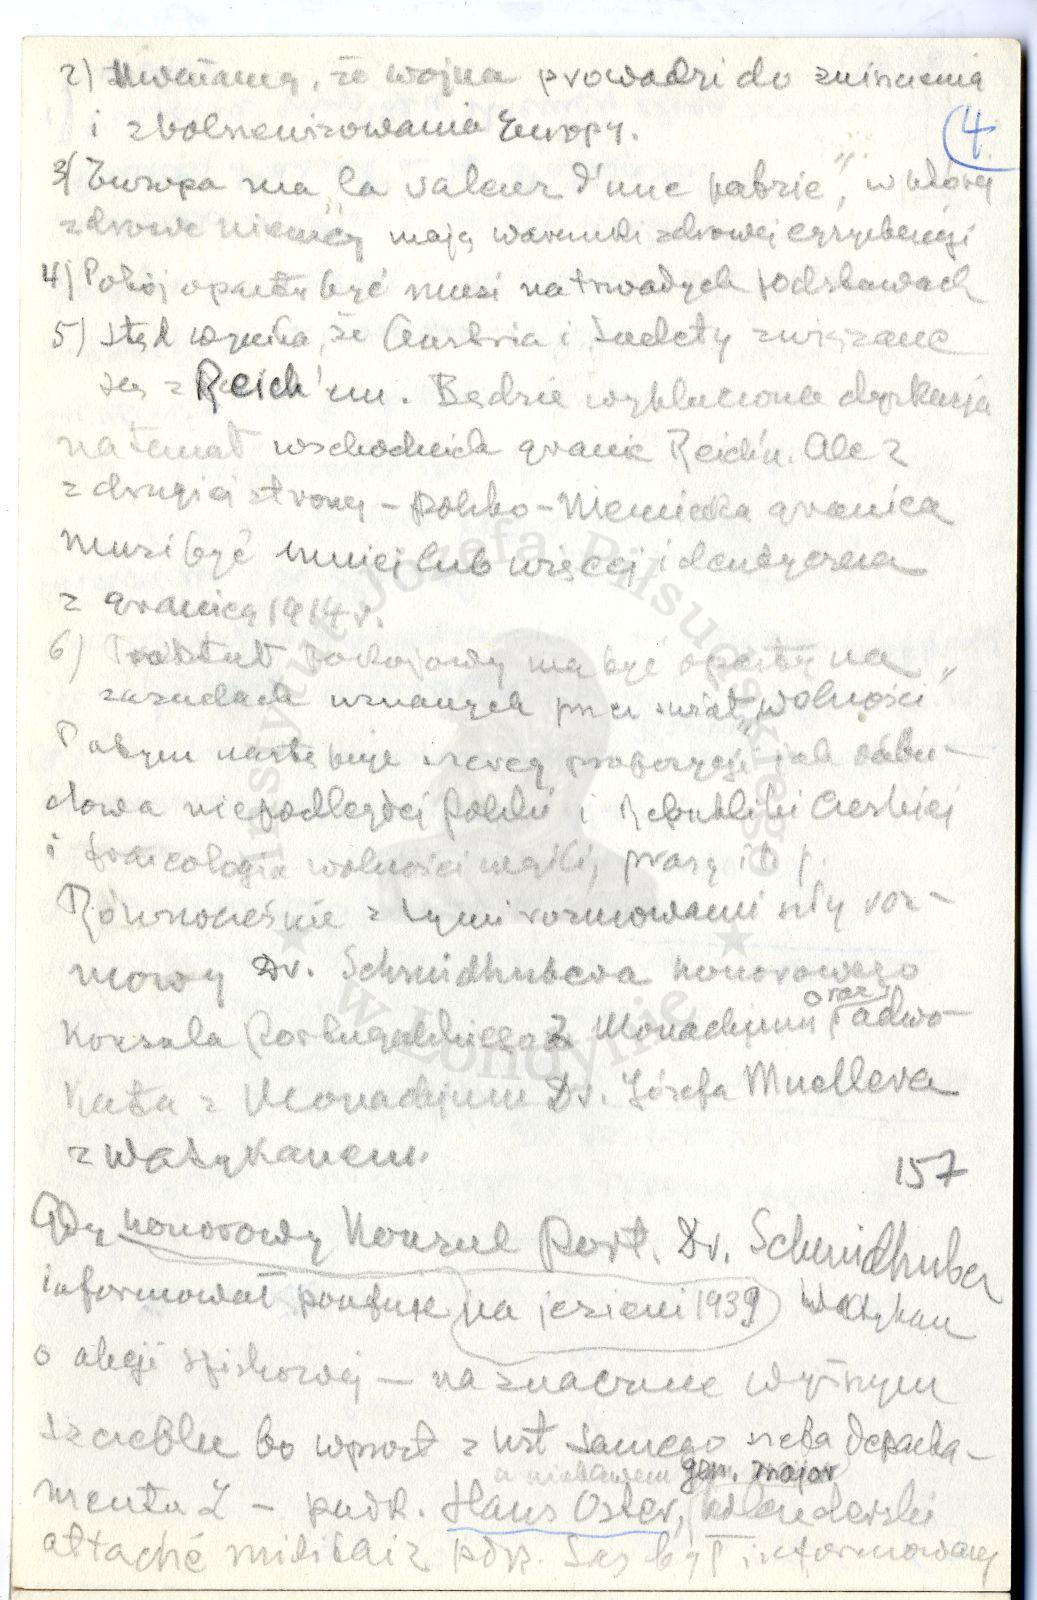 2) Uważamy, że wojna prowadzi do zniszczenia
i zbolszewizowania Europy.
4.
3) Europa ma "la valeur d'une patrie", w której
zdrowe niemcy mają warunki zdrowej egzystencji
4) Pokój oparty być musi na trwałych podstawach
5) stąd wynika, że Austria i Sudety związane
są z Reich'em. Będzie wykluczona dyskusja
na temat wschodnich granic Reich'u. Ale z
z drugiej strony - polsko-Niemiecka granica
musi być mniej lub więcej identyczna
z granicą 1914 r.
6) Traktat pokojowy ma być oparty na
zasadach uznanych przez świat "wolności"
Potym następuje szereg propozycji jak odbu-
dowa niepodległości Polski i Republiki Czeskiej
i frazeologia wolności myśli, prasy itp.
Równocześnie z tymi rozmowami szły roz-
mowy Dr. Schmidhubera honorowego
Konsula Portugalskiego z Monachium oraz adwo-
kata z Monachium Dr. Józefa Muellera
z Watykanem.
157
Gdy honorowy Konsul Port. Dr. Schmidhuber
informował poufnie na jesieni 1939 Watykan
o akcji spiskowej - na znacznie wyższym
szczeblu bo wprost z ust samego szefa Departa-
a niebawem gen. major
mentu Z - pułk. Hans Oster, holenderski
attaché militair płk. Sas był informowany
Instytut Józefa Piłsudskiego
w Londynie